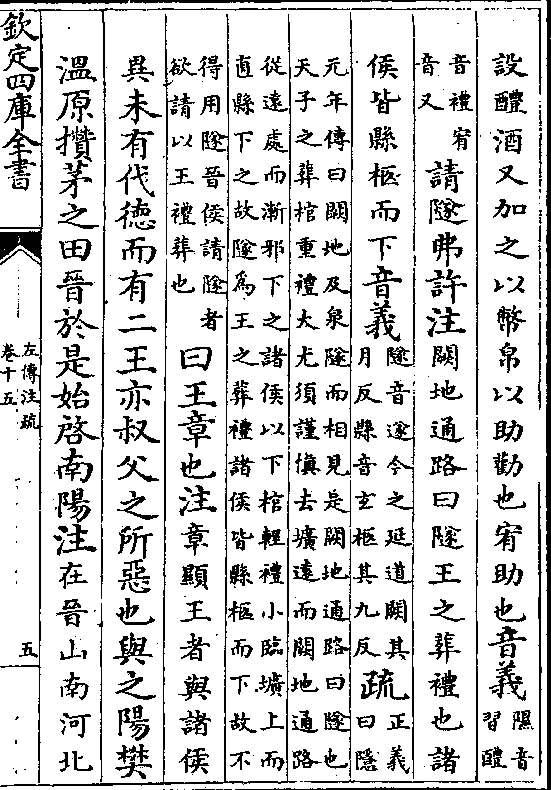 設醴酒又加之以幣帛以助勸也宥助也音義隰音
習醴
音禮宥
音又請隧弗許注闕地通路曰隧王之葬禮也諸
侯皆縣柩而下音義隧音遂今之延道闕其
月反縣音玄柩其九反疏正義
曰隱
元年傳曰闕地及泉隧而相見是闕地通路曰隧也
天子之葬棺重禮大尤須謹慎去壙遠而闕地通路
從遠處而漸邪下之諸侯以下棺輕禮小臨壙上而
直縣下之故隧為王之葬禮諸侯皆縣柩而下故不
得用隧晉侯請隧者
欲請以王禮葬也曰王章也注章顯王者與諸侯
異未有代德而有二王亦叔父之所惡也與之陽樊
溫原攢茅之田晉於是始啓南陽注在晉山南河北
欽定四庫全書
左傳注疏
卷十五
五